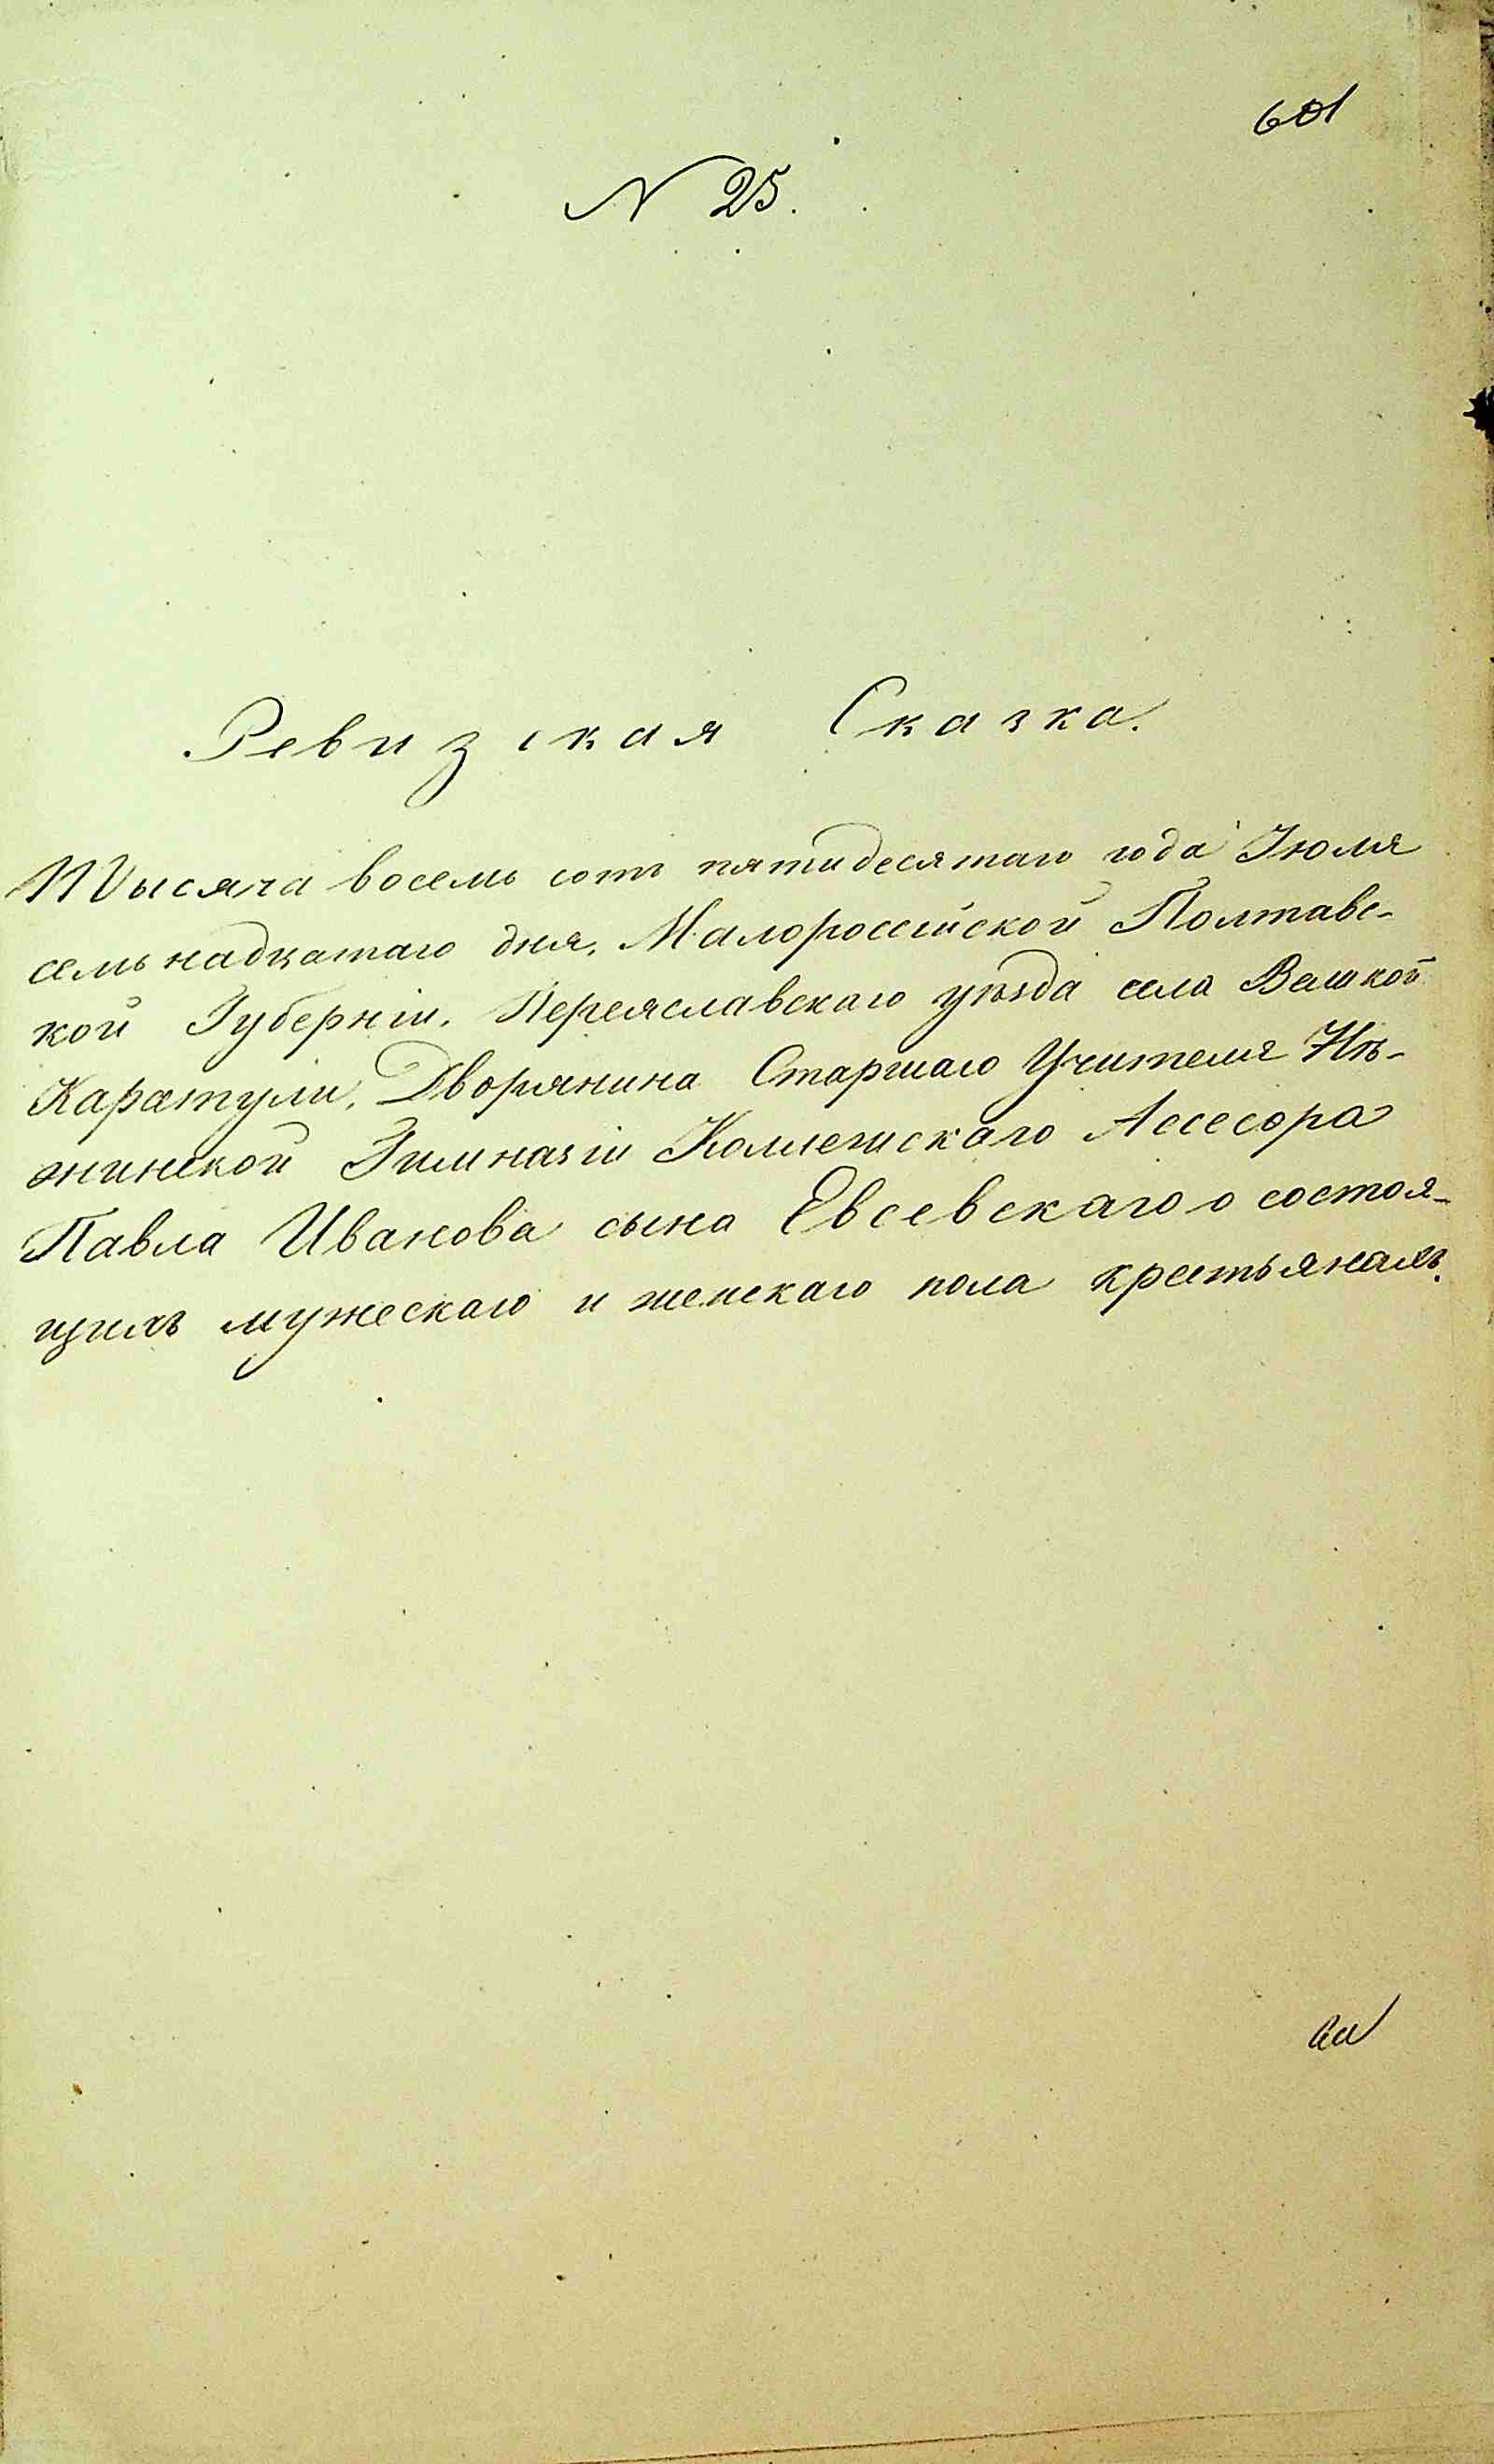 601
N 25.
Ревизская Сказка.
Тысяча восемь сотъ пятидесятаго года Іюля
семьнадцатаго дня, Малороссійской Полтавс-
кой Губерніи. Переяславскаго уѣзда села Великой
Каратули, Дворянина Старшаго Учителя Нѣ-
жинской Гимназіи Коллежскаго Ассесора
Павла Иванова сына Евсевскаго о состоя-
щихъ мужескаго и женскаго пола крестьянахъ.